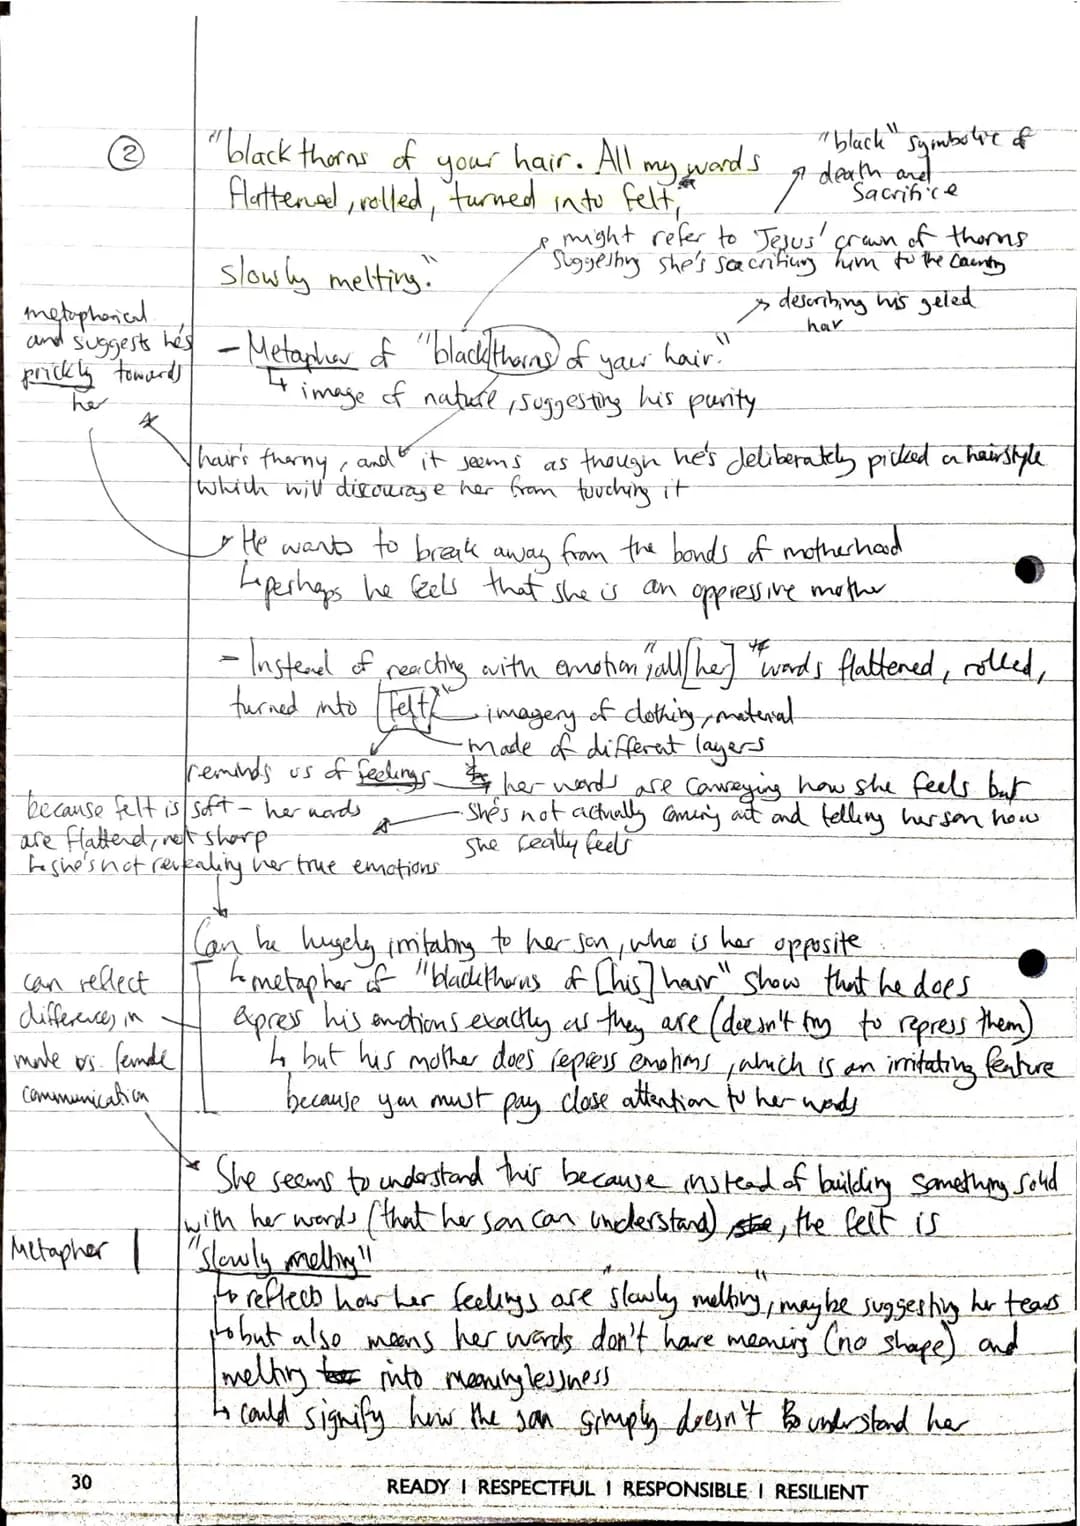 ②
"black thorns of your hair. All my words
flattened, rolled, turned into felt,
slowly melting."
"black" symbolic of
death and
Sacrifice
might refer to Jesus' crown of thorns
suggesting she's sacrificing him to the country
describing his geled
hair
metaphorical
and suggests he's
prickly towards
her
- Metaphor of "blackthorns of your hair."
↳ image of nature, suggesting his purity
hair's thorny, and it seems as though he's deliberately picked a hairstyle
which will discourage her from touching it
He wants to break away from the bonds of motherhood
↳ perhaps he feels that she is an oppressive mother
- Instead of reacting with emotion, "all [her] words flattened, rolled,
turned into felt"
imagery of clothing, material
made of different layers
reminds us of feelings
↳ her words are conveying how she feels but
she's not actually coming out and telling her son how
she really feels
because felt is soft - her words
are flattend, not sharp
↳ she's not revealing her true emotions
Can be hugely irritating to her son, who is her opposite
↳ metaphor of "blackthorns of [his] hair" show that he does
expres his emotions exactly as they are (doesn't try to repress them)
↳ but his mother does repress emotions, which is an irritating feature
because you must pay close attention to her words
can reflect
differences in
male vs. female
communication
She seems to understand this because instead of building something solid
with her words (that her son can understand), the felt is
"slowly melting"
Metaphor
↳ reflects how her feelings are "slowly melting", maybe suggesting her tears
↳ but also means her words don't have meaning (no shape) and
melting into meaninglessness
↳ could signify how the son simply doesn't understand her
30
READY | RESPECTFUL | RESPONSIBLE | RESILIENT